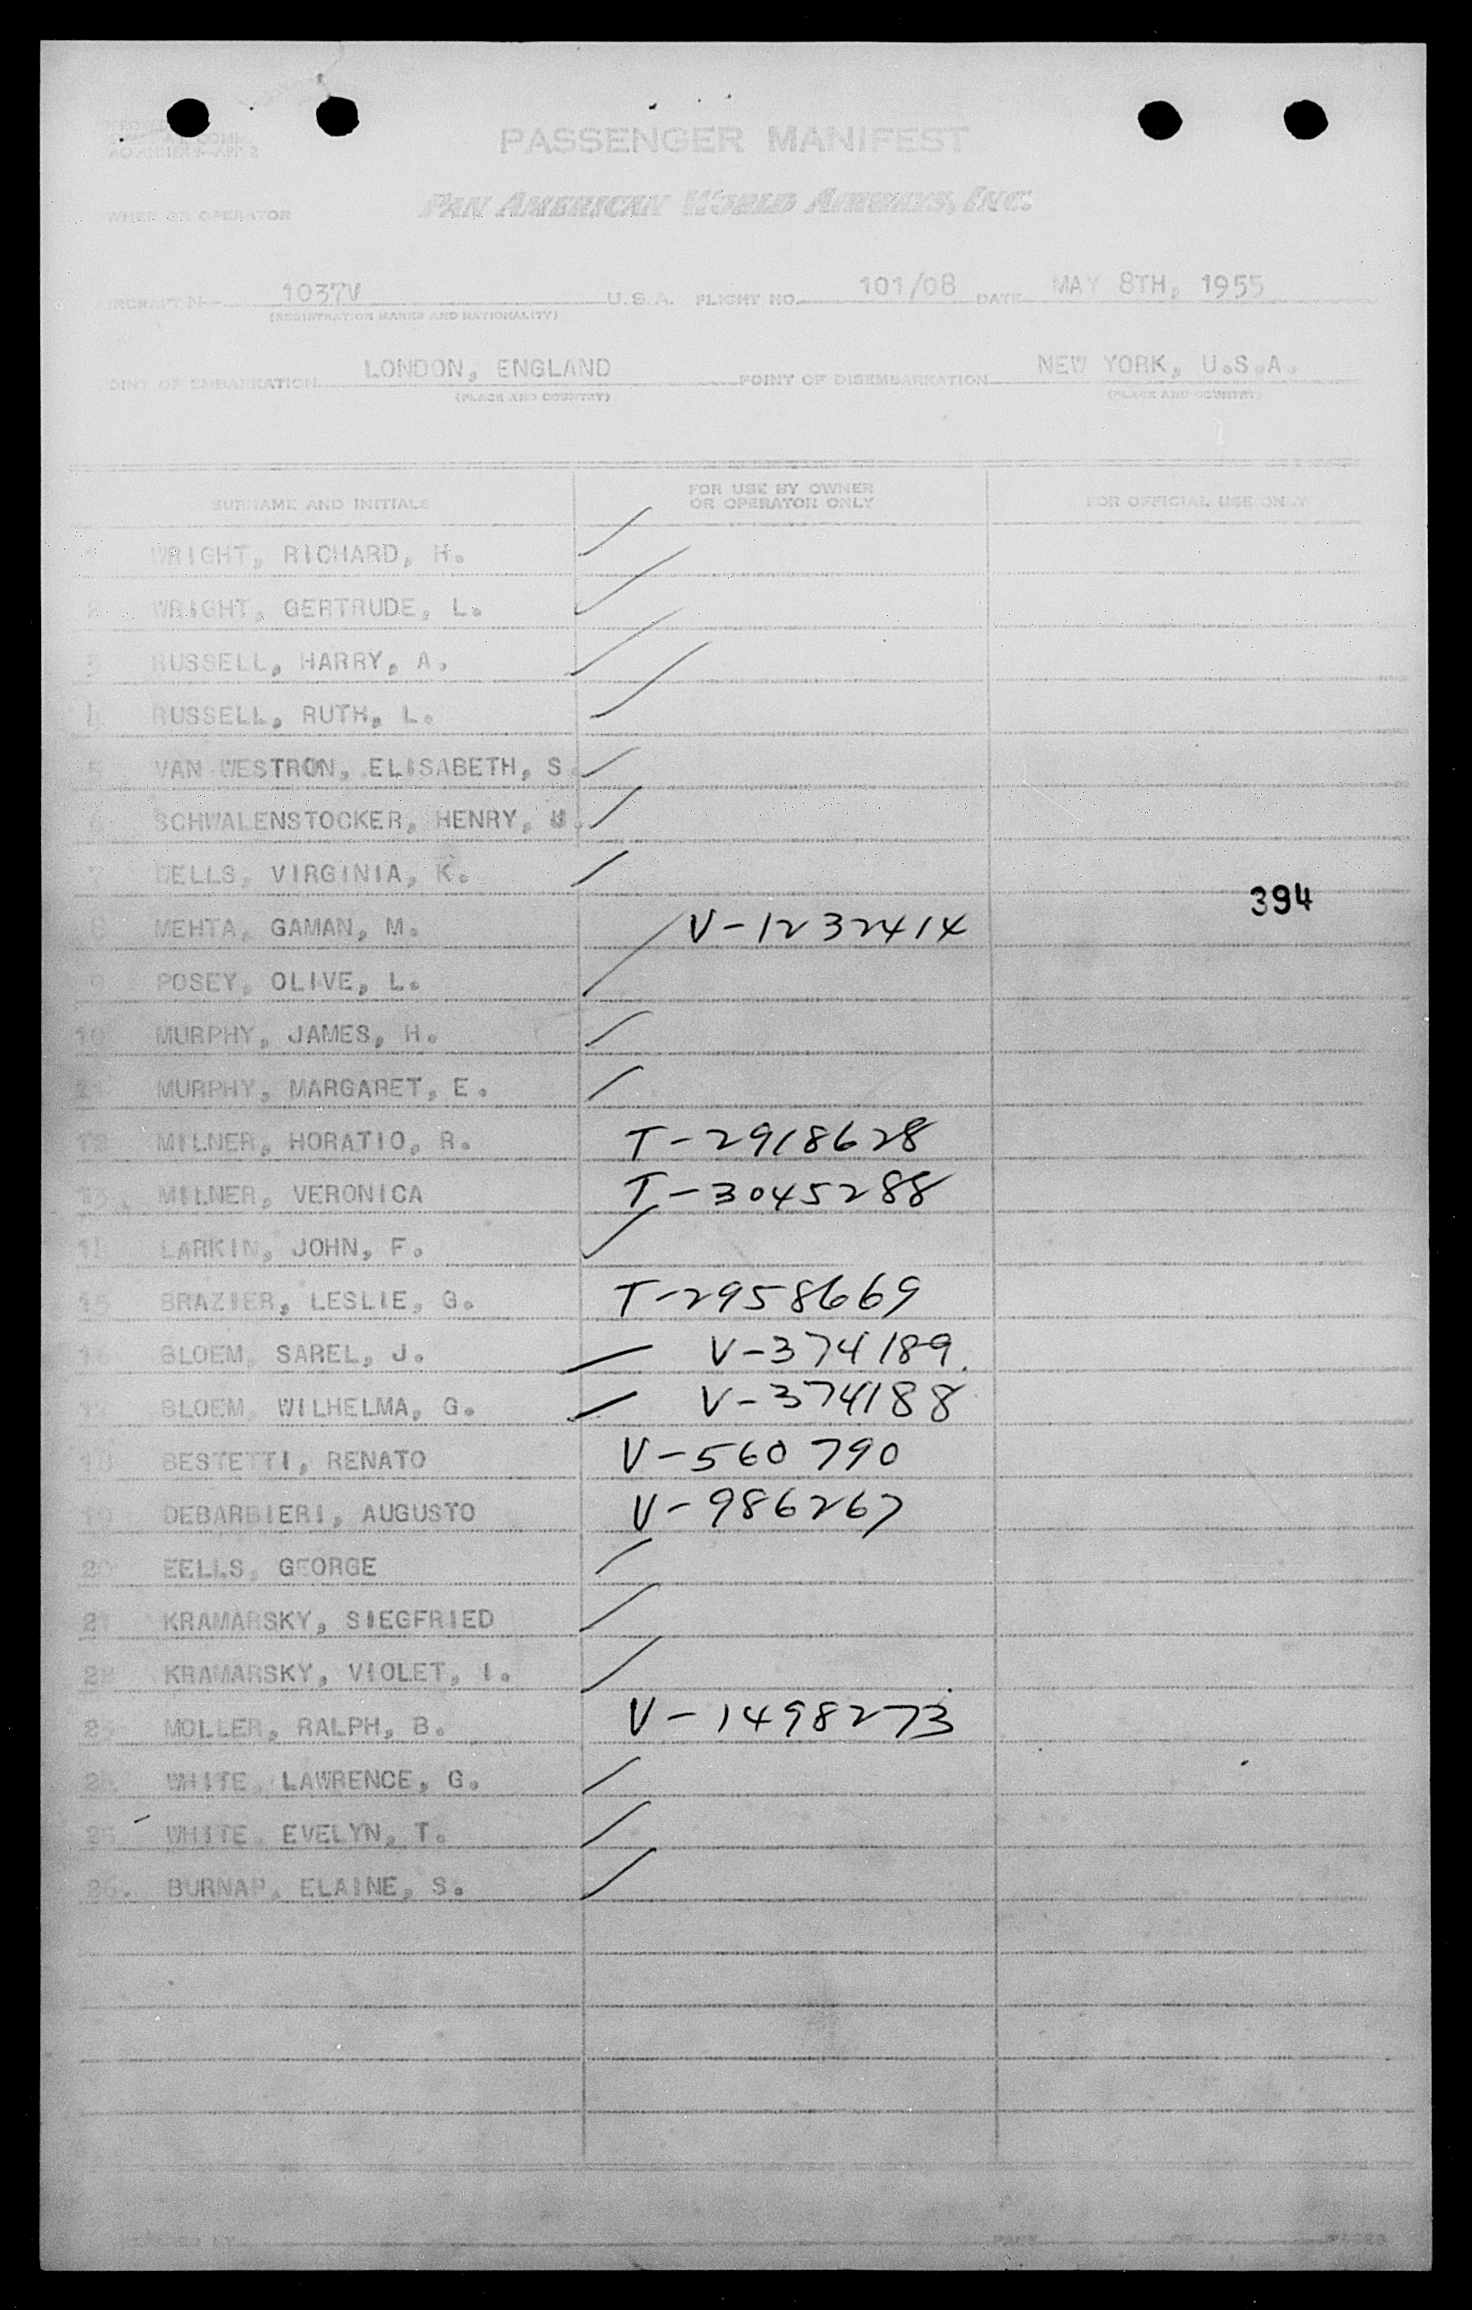 PASSENGER MANIFEST
PAN AMERICAN WORLD AIRWAYS, INC.
OR OPERATOR
1037V U.S.A. FLIGHT NO. 101/08 DATE MAY 8TH, 1955
(REGISTRATION MARKS AND NATIONALITY)
OF EMBARKATION LONDON, ENGLAND POINT OF DISEMBARKATION NEW YORK, U.S.A.
(PLACE AND COUNTRY) (PLACE AND COUNTRY)
SURNAME AND INITIALS FOR USE BY OWNER OR OPERATOR ONLY FOR OFFICIAL USE ONLY
WRIGHT, RICHARD, H.
2 WRIGHT, GERTRUDE, L.
3 RUSSELL, HARRY, A.
4 RUSSELL, RUTH, L.
5 VAN WESTRON, ELISABETH, S.
6 SCHWALENSTOCKER, HENRY, U.
7 WELLS, VIRGINIA, K.
394
8 MEHTA, GAMAN, M. V-1232414
9 POSEY, OLIVE, L.
10 MURPHY, JAMES, H.
11 MURPHY, MARGARET, E.
12 MILNER, HORATIO, R. T-2918628
13. MILNER, VERONICA T-3045288
14 LARKIN, JOHN, F.
15 BRAZIER, LESLIE, G. T-2958669
16 BLOEM, SAREL, J. V-374189
17 BLOEM, WILHELMA, G. V-374188
18 BESTETTI, RENATO V-560790
19 DEBARBIERI, AUGUSTO V-986267
20 EELLS, GEORGE
21 KRAMARSKY, SIEGFRIED
22 KRAMARSKY, VIOLET, I.
23 MOLLER, RALPH, B. V-1498273
24 WHITE, LAWRENCE, G.
25 WHITE, EVELYN, T.
26. BURNAP, ELAINE, S.
PAGE OF PAGES